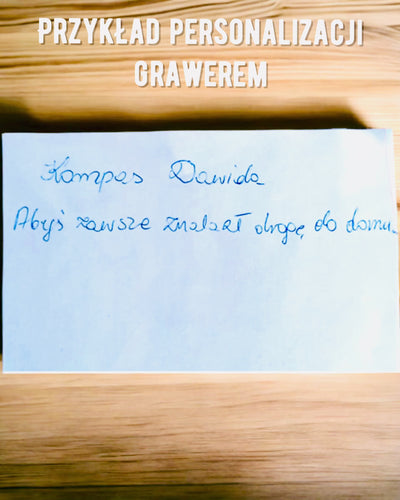 PRZYKŁAD PERSONALIZACJI
GRAWEREM
Kompas Dawida
Abyś zawsze znalazł drogę do domu.